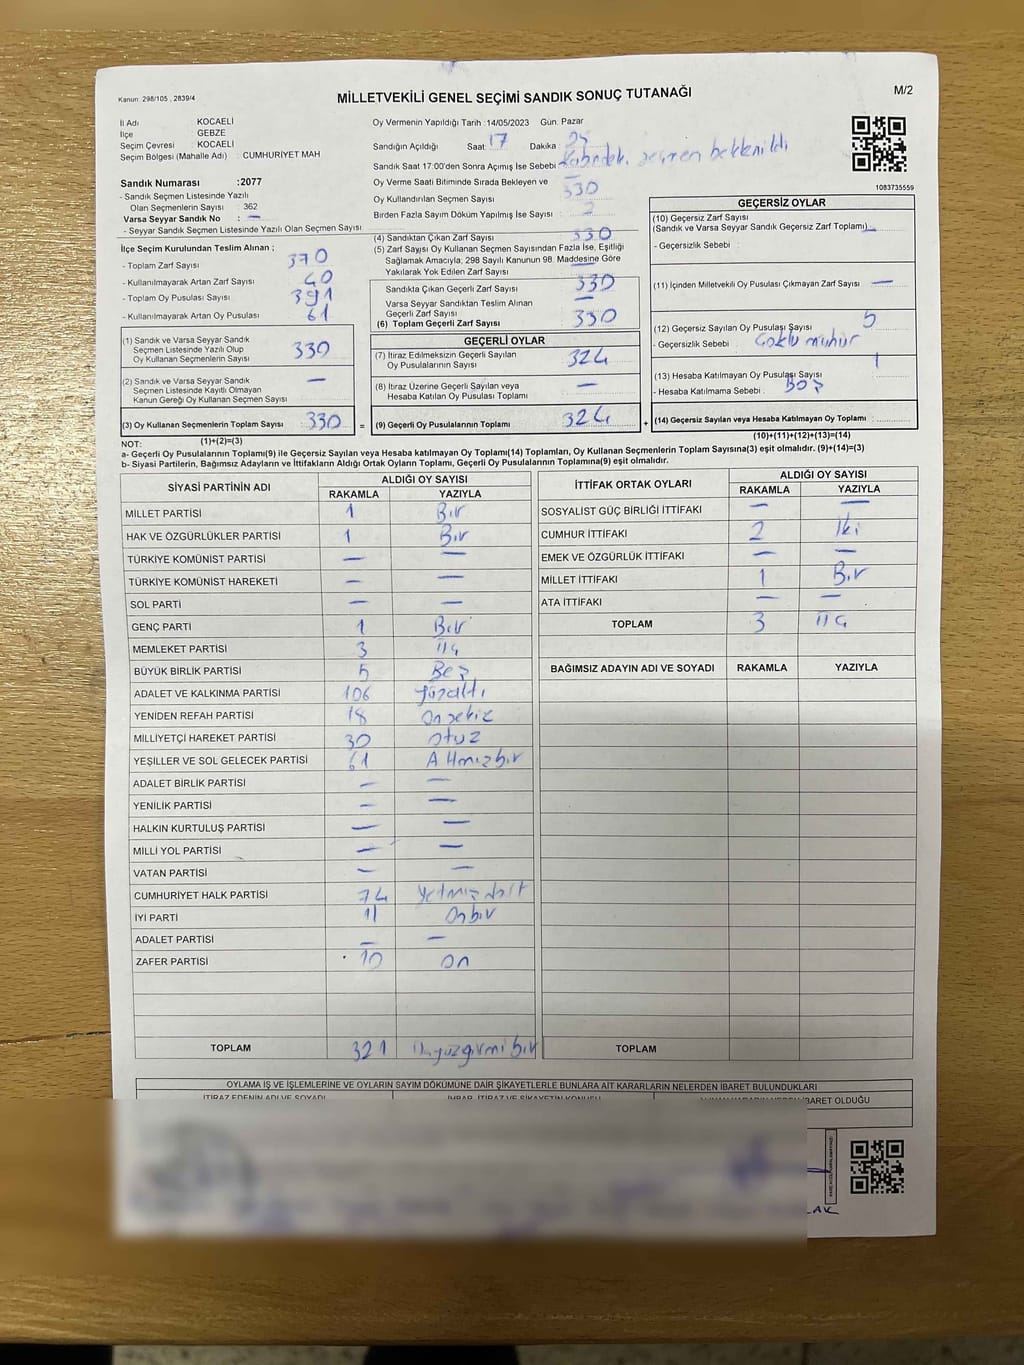 Kanun: 298/105 , 2839/4
MİLLETVEKİLİ GENEL SEÇİMİ SANDIK SONUÇ TUTANAĞI
M/2
İl Adı : KOCAELİ
İlçe : GEBZE
Seçim Çevresi : KOCAELİ
Seçim Bölgesi (Mahalle Adı) : CUMHURİYET MAH
Sandık Numarası :2077
- Sandık Seçmen Listesinde Yazılı
Olan Seçmenlerin Sayısı : 362
Varsa Seyyar Sandık No : —
- Seyyar Sandık Seçmen Listesinde Yazılı Olan Seçmen Sayısı
Oy Vermenin Yapıldığı Tarih :14/05/2023 Gün: Pazar
Sandığın Açıldığı Saat: 17 Dakika:
Sandık Saat 17:00'den Sonra Açımış İse Sebebi : seçmen beklenildi
Oy Verme Saati Bitiminde Sırada Bekleyen ve
Oy Kullandırılan Seçmen Sayısı : 330
Birden Fazla Sayım Döküm Yapılmış İse Sayısı : 2
1083735559
İlçe Seçim Kurulundan Teslim Alınan ;
- Toplam Zarf Sayısı : 370
- Kullanılmayarak Artan Zarf Sayısı : 40
- Toplam Oy Pusulası Sayısı : 391
- Kullanılmayarak Artan Oy Pusulası : 61
(1) Sandık ve Varsa Seyyar Sandık
Seçmen Listesinde Yazılı Olup
Oy Kullanan Seçmenlerin Sayısı 330
(2) Sandık ve Varsa Seyyar Sandık
Seçmen Listesinde Kayıtlı Olmayan
Kanun Gereği Oy Kullanan Seçmen Sayısı —
(3) Oy Kullanan Seçmenlerin Toplam Sayısı 330 =
(1)+(2)=(3)
(4) Sandıktan Çıkan Zarf Sayısı : 330
(5) Zarf Sayısı Oy Kullanan Seçmen Sayısından Fazla İse, Eşitliği
Sağlamak Amacıyla, 298 Sayılı Kanunun 98. Maddesine Göre
Yakılarak Yok Edilen Zarf Sayısı : —
Sandıkta Çıkan Geçerli Zarf Sayısı : 330
Varsa Seyyar Sandıktan Teslim Alınan
Geçerli Zarf Sayısı : —
(6) Toplam Geçerli Zarf Sayısı : 330
GEÇERLİ OYLAR
(7) İtiraz Edilmeksizin Geçerli Sayılan
Oy Pusulalarının Sayısı : 324
(8) İtiraz Üzerine Geçerli Sayılan veya
Hesaba Katılan Oy Pusulası Toplamı : —
(9) Geçerli Oy Pusulalarının Toplamı : 324 +
GEÇERSİZ OYLAR
(10) Geçersiz Zarf Sayısı
(Sandık ve Varsa Seyyar Sandık Geçersiz Zarf Toplamı) : —
- Geçersizlik Sebebi :
(11) İçinden Milletvekili Oy Pusulası Çıkmayan Zarf Sayısı : —
(12) Geçersiz Sayılan Oy Pusulası Sayısı : 5
- Geçersizlik Sebebi : Çoklu mühür
(13) Hesaba Katılmayan Oy Pusulası Sayısı : 1
- Hesaba Katılmama Sebebi : Boş
(14) Geçersiz Sayılan veya Hesaba Katılmayan Oy Toplamı :
(10)+(11)+(12)+(13)=(14)
NOT:
a- Geçerli Oy Pusulalarının Toplamı(9) ile Geçersiz Sayılan veya Hesaba katılmayan Oy Toplamı(14) Toplamları, Oy Kullanan Seçmenlerin Toplam Sayısına(3) eşit olmalıdır. (9)+(14)=(3)
b- Siyasi Partilerin, Bağımsız Adayların ve İttifakların Aldığı Ortak Oyların Toplamı, Geçerli Oy Pusulalarının Toplamına(9) eşit olmalıdır.
SİYASİ PARTİNİN ADI ALDIĞI OY SAYISI
RAKAMLA YAZIYLA
MİLLET PARTİSİ 1 Bir
HAK VE ÖZGÜRLÜKLER PARTİSİ 1 Bir
TÜRKİYE KOMÜNİST PARTİSİ — —
TÜRKİYE KOMÜNİST HAREKETİ — —
SOL PARTİ — —
GENÇ PARTİ 1 Bir
MEMLEKET PARTİSİ 3 üç
BÜYÜK BİRLİK PARTİSİ 5 Beş
ADALET VE KALKINMA PARTİSİ 106 yüzaltı
YENİDEN REFAH PARTİSİ 18 Onsekiz
MİLLİYETÇİ HAREKET PARTİSİ 30 otuz
YEŞİLLER VE SOL GELECEK PARTİSİ 61 Altmışbir
ADALET BİRLİK PARTİSİ — —
YENİLİK PARTİSİ — —
HALKIN KURTULUŞ PARTİSİ — —
MİLLİ YOL PARTİSİ — —
VATAN PARTİSİ — —
CUMHURİYET HALK PARTİSİ 74 yetmiş dört
İYİ PARTİ 11 Onbir
ADALET PARTİSİ — —
ZAFER PARTİSİ 10 On
TOPLAM 321 üçyüzyirmi bir
İTTİFAK ORTAK OYLARI ALDIĞI OY SAYISI
RAKAMLA YAZIYLA
SOSYALİST GÜÇ BİRLİĞİ İTTİFAKI — —
CUMHUR İTTİFAKI 2 İki
EMEK VE ÖZGÜRLÜK İTTİFAKI — —
MİLLET İTTİFAKI 1 Bir
ATA İTTİFAKI — —
TOPLAM 3 üç
BAĞIMSIZ ADAYIN ADI VE SOYADI RAKAMLA YAZIYLA
TOPLAM
OYLAMA İŞ VE İŞLEMLERİNE VE OYLARIN SAYIM DÖKÜMÜNE DAİR ŞİKAYETLERLE BUNLARA AİT KARARLARIN NELERDEN İBARET BULUNDUKLARI
İTİRAZ EDENİN ADI VE SOYADI İHBAR, İTİRAZ VE ŞİKAYETİN KONUSU İBARET OLDUĞU